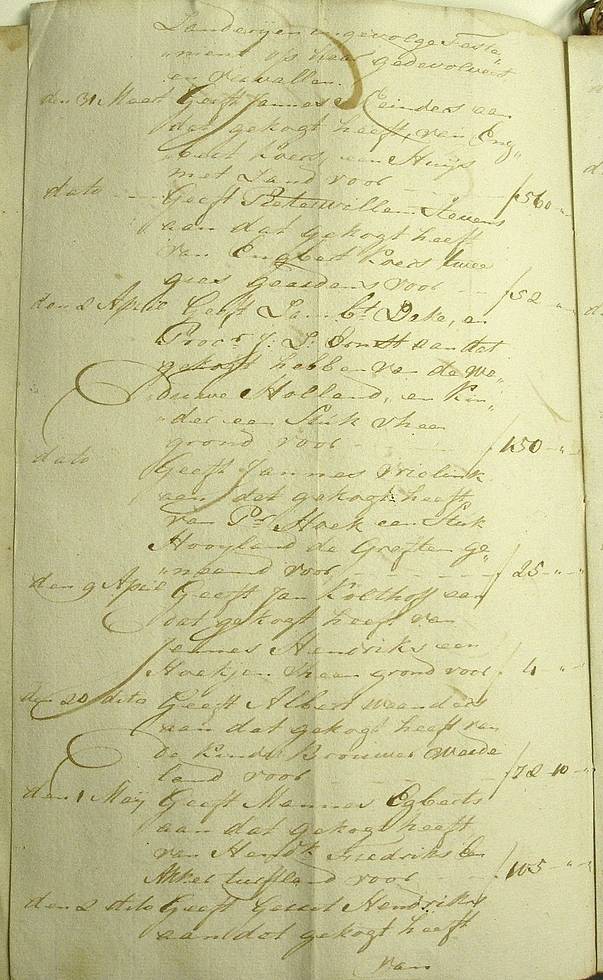 Landerijen in gevolge Testa„
„ment op haar gedevolveert
en vervallen.
den 31 Maart Geeft Jannes Reinders aan
dat gekogt heeft, van Eng„
„bert Koers, een Huijs
met Land voor f 560 „ „
dato Geeft Pieter Willem Stevens
aan dat gekogt heeft
van Engbert Koers twee
gres Gaardens voor f 52 „ „
den 2 April Geeft Jan Bt Dake, en
Procr J: L: aan dat
gekogt hebben van de We„
„duwe Holland, en Kin„
„der een Stuk Vheen
grond voor f 150 „ „
dato Geeft Jannes Vrielink
aan dat gekogt heeft
van Pr Hoek een Stuk
Hooyland de Groften ge„
„naamd voor f 25 „ „
den 9 April Geeft Jan Kolthoff aan
dat gekogt heeft van
Jannes Hendriks een
Hoekjen Vheen grond voor f 4 „ „
den 20 dito Geeft Albert
aan dat gekogt heeft van
de Kinder Brouwer Weide
land voor f 72 10 „
den 1 Meij Geeft Mannes Egberts
aan dat gekogt heeft
van Hendk Fredriks een
Akker turfland voor f 105 „ „
den 2 dito Geeft Geert Hendriks
aan dat gekogt heeft
van